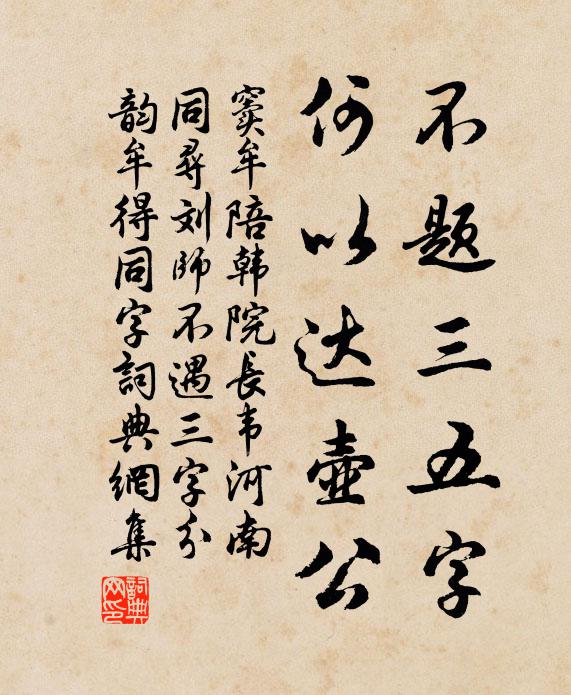 不题三五字
何以达壶公
窦牟陪韩院長韦河南
同尋刘師不遇三字分
韵牟得同字詞典網集
詞典网印